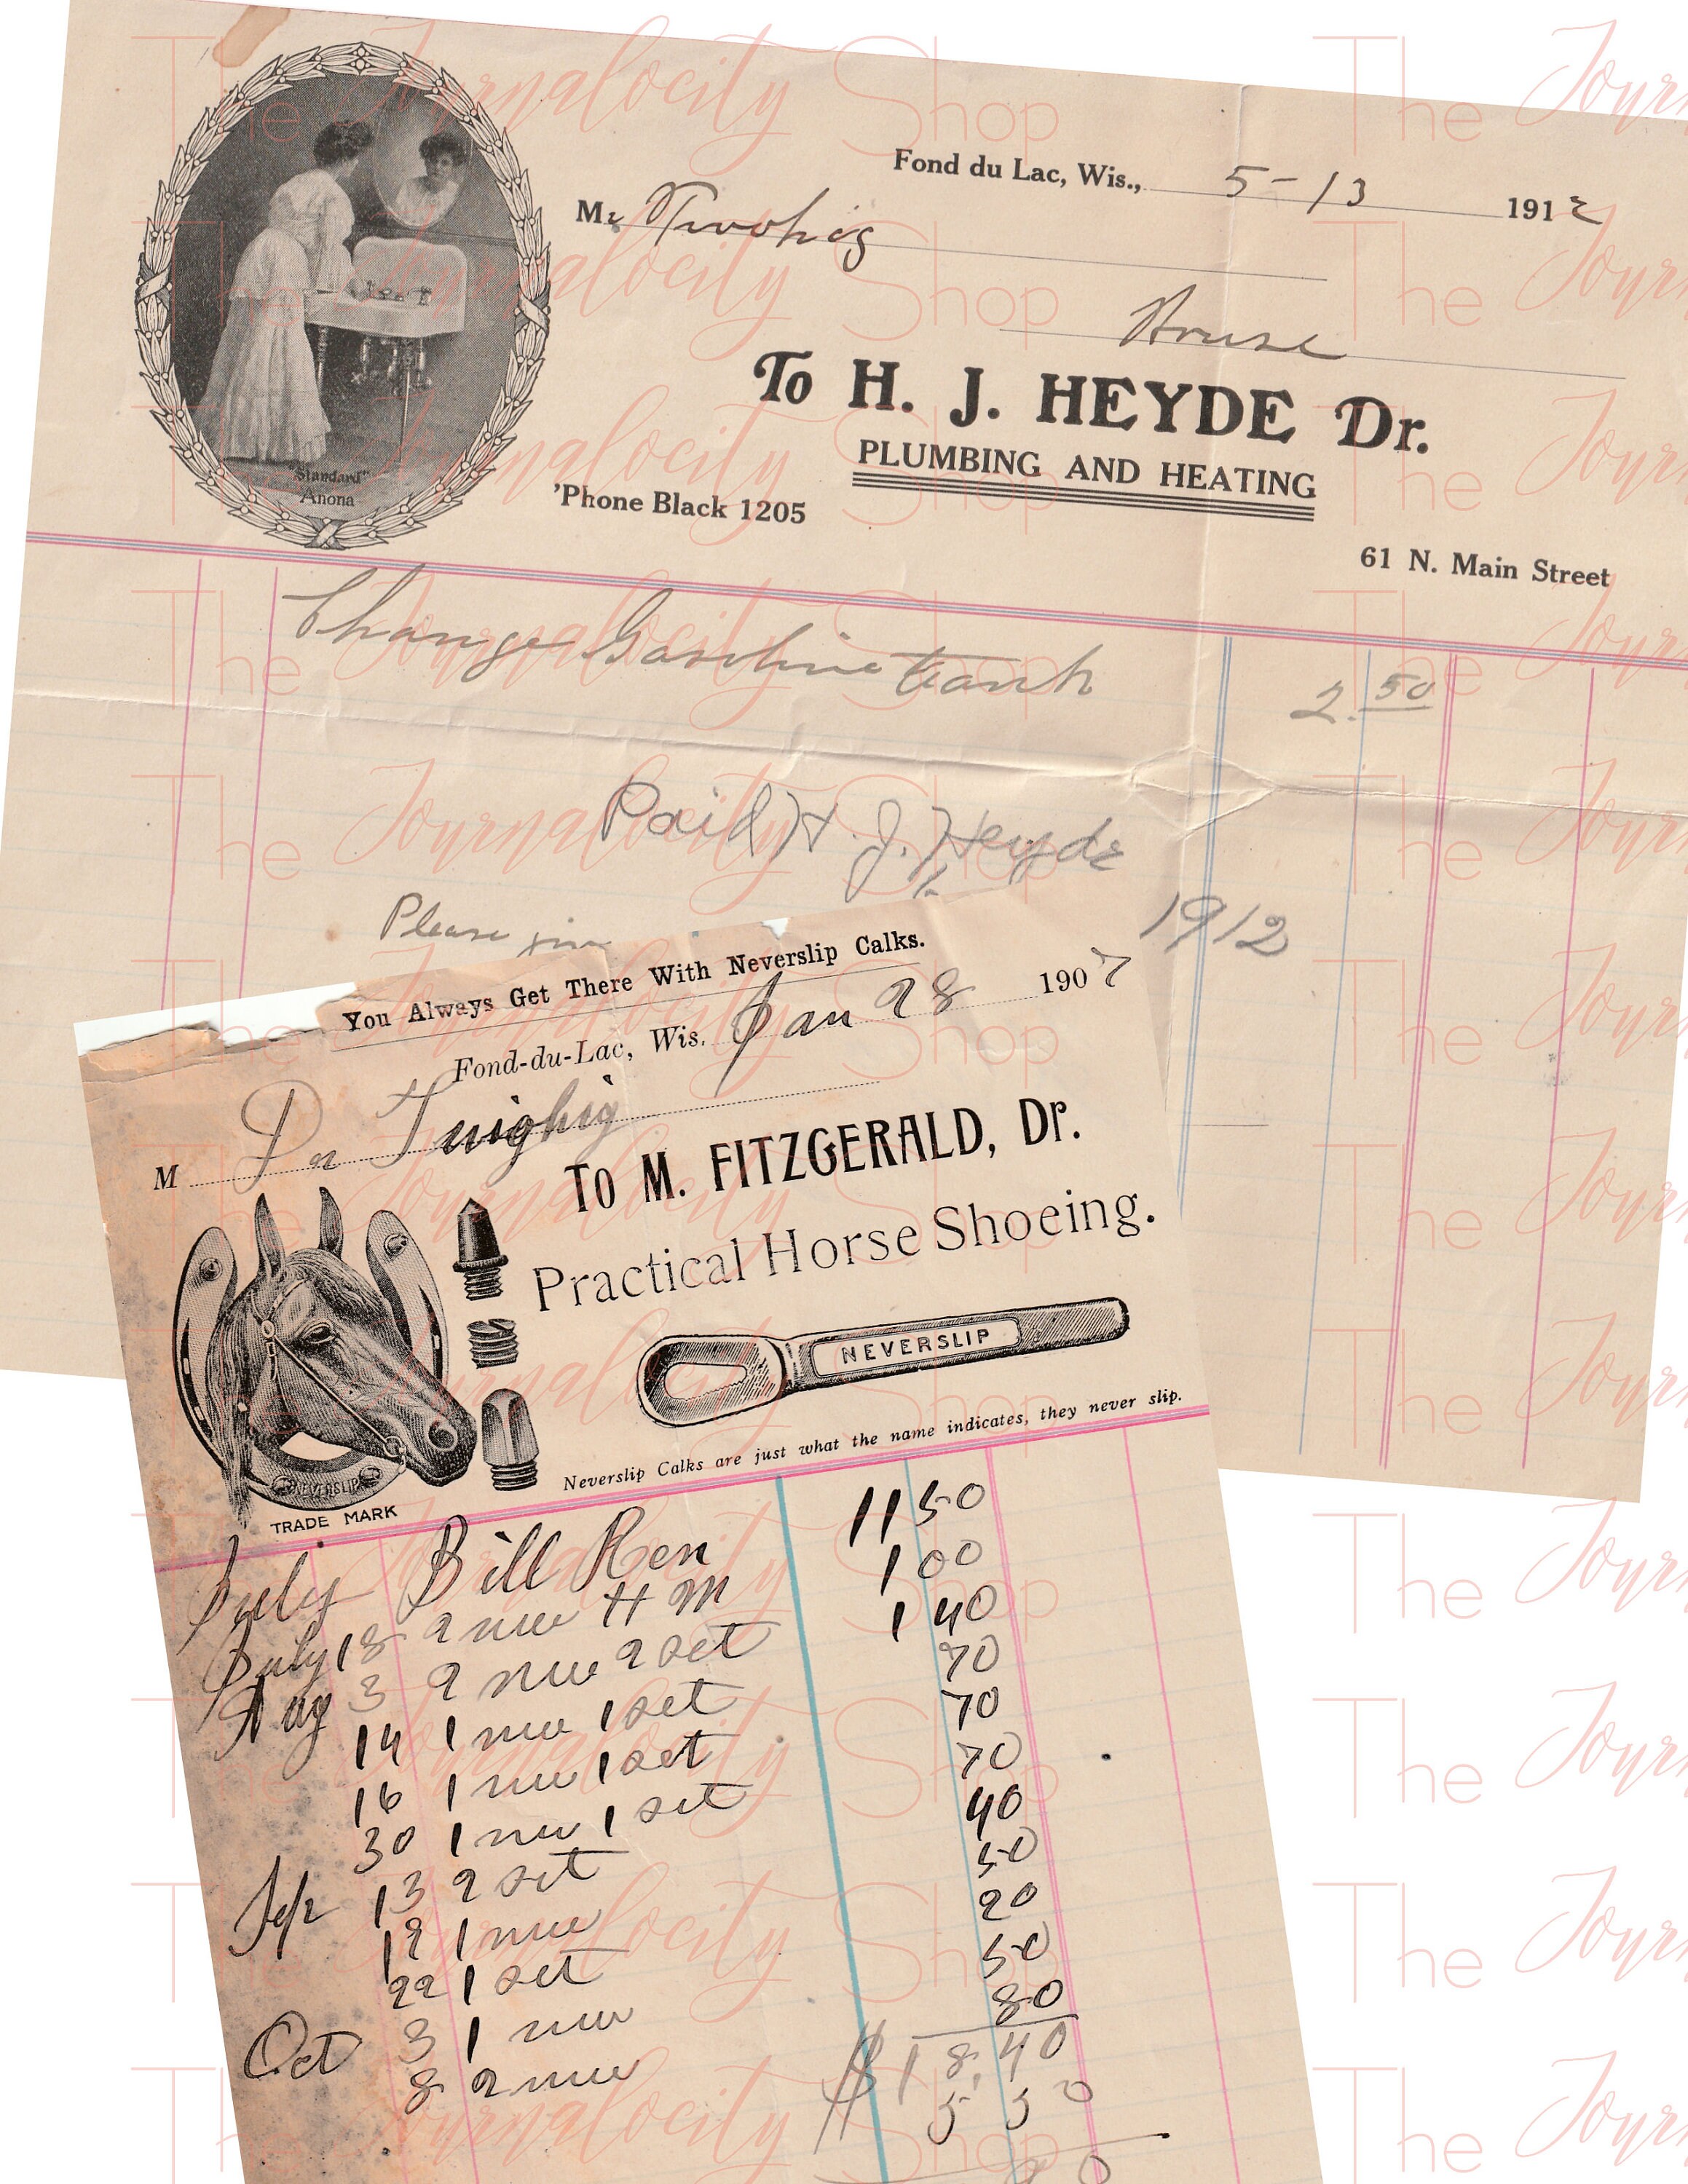 The Journalocity Shop
Fond du Lac, Wis., 5-13 1912
Mr Twohig
House
To H. J. HEYDE Dr.
PLUMBING AND HEATING
'Phone Black 1205
61 N. Main Street
"Standard"
Anona
Change Gasoline tank 2.50
Paid H. J. Heyde
1912
Please
You Always Get There With Neverslip Calks.
Fond-du-Lac, Wis. Jan 28 1907
M Dr Twighig
To M. FITZGERALD, Dr.
Practical Horse Shoeing.
NEVERSLIP
Neverslip Calks are just what the name indicates, they never slip.
NEVERSLIP
TRADE MARK
July Bill Ren 11 50
July 18 2 new H M 1 00
Aug 3 2 new 2 set 1 40
14 1 new 1 set 70
16 1 new 1 set 70
30 1 new 1 set 70
Sep 13 2 set 40
19 1 new 50
22 1 set 20
Oct 3 1 new 50
8 2 new 80
$18.40
5 50